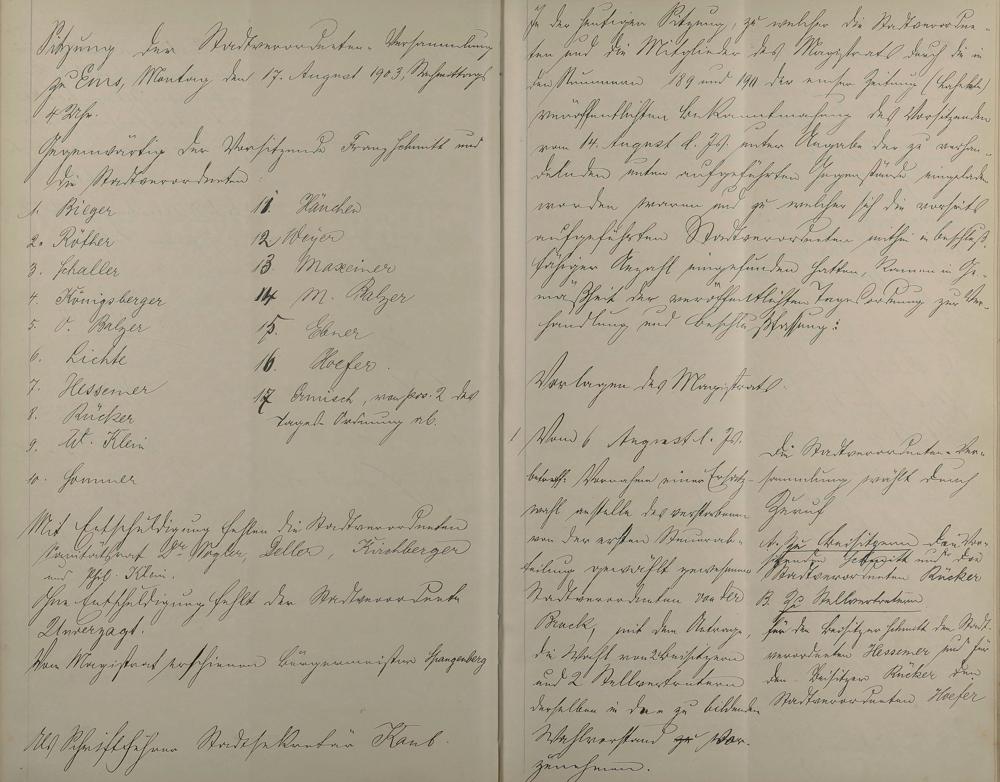 Sitzung der Stadtverordneten-Versammlung
zu Ems, Montag, den 17. August 1903, Nachmittags
4 Uhr.
Gegenwärtig der Vorsitzende Franz Schmitt und
die Stadtverordneten
1. Bieger
2. Röther
3. Schaller
4. Königsberger
5. O. Balzer
6. Lichte
7. Hessemer
8. Rücker
9. W. Klein
10. Sommer
11. Hänchen
12 Weyer
13 Maxeiner
14 M. Balzer
15. Ebner
16. Hoefer.
17 Ermisch, von pos. 2 der
Tages-Ordnung ab.
Mit Entschuldigung fehlen die Stadtverordneten
Sanitätsrat Dr. Vogler, Deller, Kirchberger
und Phil. Klein.
Ohne Entschuldigung fehlt der Stadtverordnete
Unverzagt.
Vom Magistrat erschienen Bürgermeister Spangenberg
Als Schriftführer Stadtsekretär Kaub.
In der heutigen Sitzung, zu welcher die Stadtverordne-
ten und die Mitglieder des Magistrats durch die in
den Nummern 189 und 190 der Emser Zeitung
veröffentlichten Bekanntmachung des Vorsitzenden
vom 14. August l. Js. unter Angabe der zu verhan-
delnden unten aufgeführten Gegenstände eingeladen
worden waren und zu welcher sich die vorseits
aufgeführten Stadtverordneten mithin in beschluß-
fähiger Anzahl eingefunden hatten, kamen in Ge-
mäßheit der veröffentlichten Tagesordnung zur Ver-
handlung und Beschlußfassung:
Vorlagen des Magistrats.
1 Vom 6 August l. Js.
betreff. Vornahme einer Ersatz-
wahl anstelle des verstorbenen
von der ersten Steuerab-
teilung gewählt gewesenen
Stadtverordneten von der
Brock, mit dem Antrage,
die Wahl von 2 Beisitzern
und 2 Stellvertretern
derselben in den zu bildenden
Wahlvorstand zu vor-
zunehmen.
Die Stadtverordneten-Ver-
sammlung wählt durch
Zuruf
A. Zu Beisitzern den Vor-
sitzenden Schmitt und den
Stadtverordneten Rücker
B. Zu Stellvertretern
für den Beisitzer Schmitt den Stadt-
verordneten Hessemer und für
den Beisitzer Rücker den
Stadtverordneten Hoefer